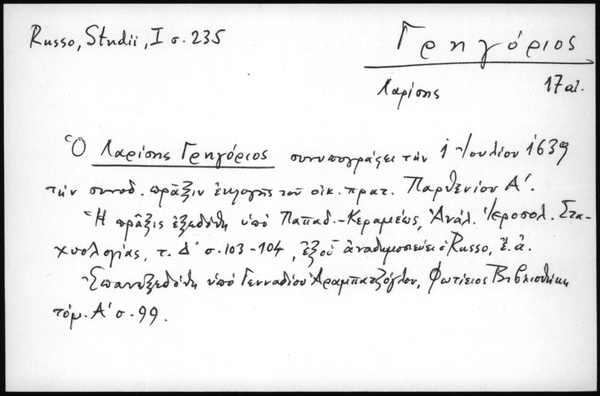 Russo, Studii, I σ. 235
Γρηγόριος
Λαρίσης 17 αἰ.
Ὁ Λαρίσης Γρηγόριος συνυπογράφει τὴν 1 Ἰουλίου 1639
τὴν συνοδ. πρᾶξιν ἐκλογῆς τοῦ οἰκ. πατ. Παρθενίου Α΄.
Ἡ πρᾶξις ἐξεδόθη ὑπὸ Παπαδ.-Κεραμέως, Ἀνάλ. Ἱεροσολ. Στα-
χυολογίας, τ. Δ΄ σ. 103-104, ἐξ οὗ ἀναδημοσιεύει ὁ Russo, ἔ.ἀ.
Ἐπανεξεδόθη ὑπὸ Γενναδίου Ἀραμπατζόγλου, Φωτίειος Βιβλιοθήκη
τόμ. Α΄ σ. 99.